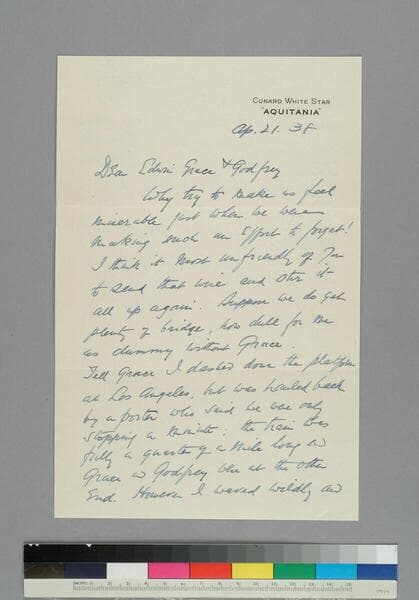 CUNARD WHITE STAR
"AQUITANIA"
Ap. 21. 38
Dear Edwin Grace & Godfrey
Why try to make us feel
miserable just when we were
making such an effort to forget!
I think it most unfriendly of you
to send that wire and stir it
all up again. Suppose we do get
plenty of bridge, how dull for me
as dummy without Grace.
Tell Grace I dashed down the platform
at Los Angeles, but was hauled back
by a porter who said we were only
stopping a minute: the train was
fully a quarter of a mile long and
Grace & Godfrey were at the other
end. However I waved wildly and